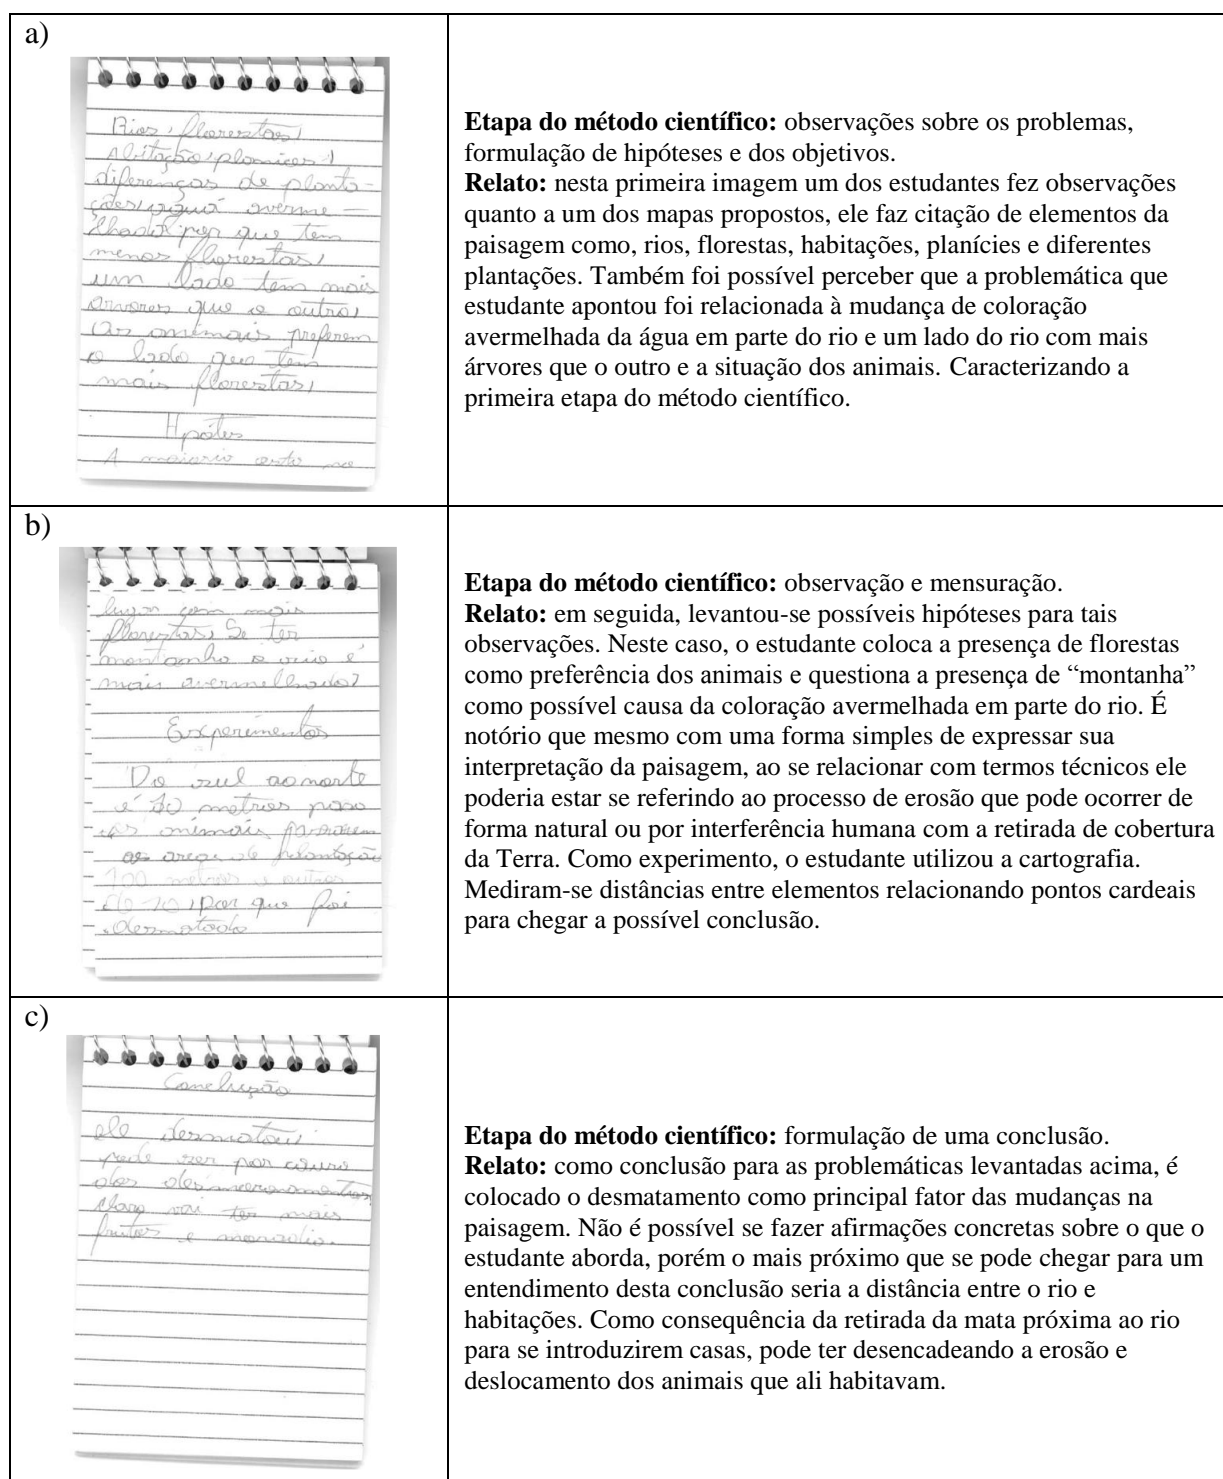 a)
Rios, florestas,
abitação, planices,
diferenças de planta-
ções, água averme-
lhada por que tem
menos florestas,
um lado tem mais
arvores que o outro,
os animais preferem
o lado que tem
mais florestas,
Hpótes
A maioria esta no
Etapa do método científico: observações sobre os problemas,
formulação de hipóteses e dos objetivos.
Relato: nesta primeira imagem um dos estudantes fez observações
quanto a um dos mapas propostos, ele faz citação de elementos da
paisagem como, rios, florestas, habitações, planícies e diferentes
plantações. Também foi possível perceber que a problemática que
estudante apontou foi relacionada à mudança de coloração
avermelhada da água em parte do rio e um lado do rio com mais
árvores que o outro e a situação dos animais. Caracterizando a
primeira etapa do método científico.
b)
lugar com mais
florestas, Se ter
montanha o rio é
mais avermelhado?
Experimentos
Do sul ao norte
é 10 metros para
os animais passarem
as areas de plantação
100 metros e outros
de 10, por que foi
desmatado
Etapa do método científico: observação e mensuração.
Relato: em seguida, levantou-se possíveis hipóteses para tais
observações. Neste caso, o estudante coloca a presença de florestas
como preferência dos animais e questiona a presença de “montanha”
como possível causa da coloração avermelhada em parte do rio. É
notório que mesmo com uma forma simples de expressar sua
interpretação da paisagem, ao se relacionar com termos técnicos ele
poderia estar se referindo ao processo de erosão que pode ocorrer de
forma natural ou por interferência humana com a retirada de cobertura
da Terra. Como experimento, o estudante utilizou a cartografia.
Mediram-se distâncias entre elementos relacionando pontos cardeais
para chegar a possível conclusão.
c)
Concluzão
ele desmatou
pode ser por
dos
vai ter mais
frutos e moradia.
Etapa do método científico: formulação de uma conclusão.
Relato: como conclusão para as problemáticas levantadas acima, é
colocado o desmatamento como principal fator das mudanças na
paisagem. Não é possível se fazer afirmações concretas sobre o que o
estudante aborda, porém o mais próximo que se pode chegar para um
entendimento desta conclusão seria a distância entre o rio e
habitações. Como consequência da retirada da mata próxima ao rio
para se introduzirem casas, pode ter desencadeando a erosão e
deslocamento dos animais que ali habitavam.